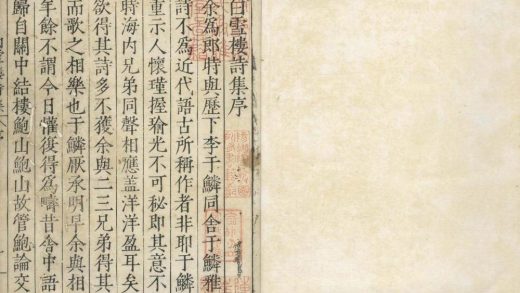 白雪樓詩集序
余為郎時與歷下李于鱗同舍于鱗雅
詩不為近代語古所稱作者非耶于鱗
重示人懷瑾握瑜光不可秘即其意不
欲得其詩多不獲余與二三兄弟得其
時海内兄弟同聲相應盖洋洋盈耳矣
而歌之相樂也于鱗厭承明早余與相
年餘不謂今日懽復得為疇昔舍中語
歸自關中結樓鮑山鮑山故管鮑論交